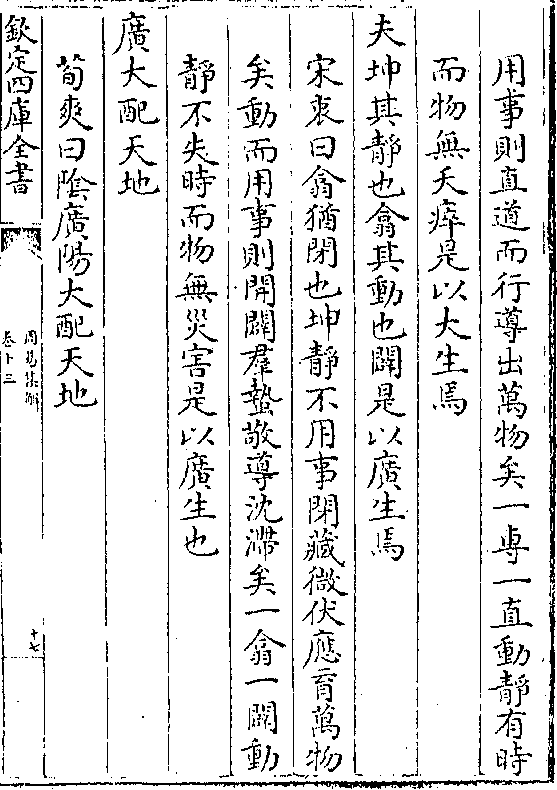 用事則直道而行導出萬物矣一専一直動靜有時
而物無夭瘁是以大生焉
夫坤其靜也翕其動也闢是以廣生焉
宋衷曰翕猶閉也坤靜不用事閉藏微伏應育萬物
矣動而用事則開闢羣蟄敬導沈滯矣一翕一闢動
靜不失時而物無災害是以廣生也
廣大配天地
荀爽曰陰廣陽大配天地
欽定四庫全書
周易集解
卷十三
十七